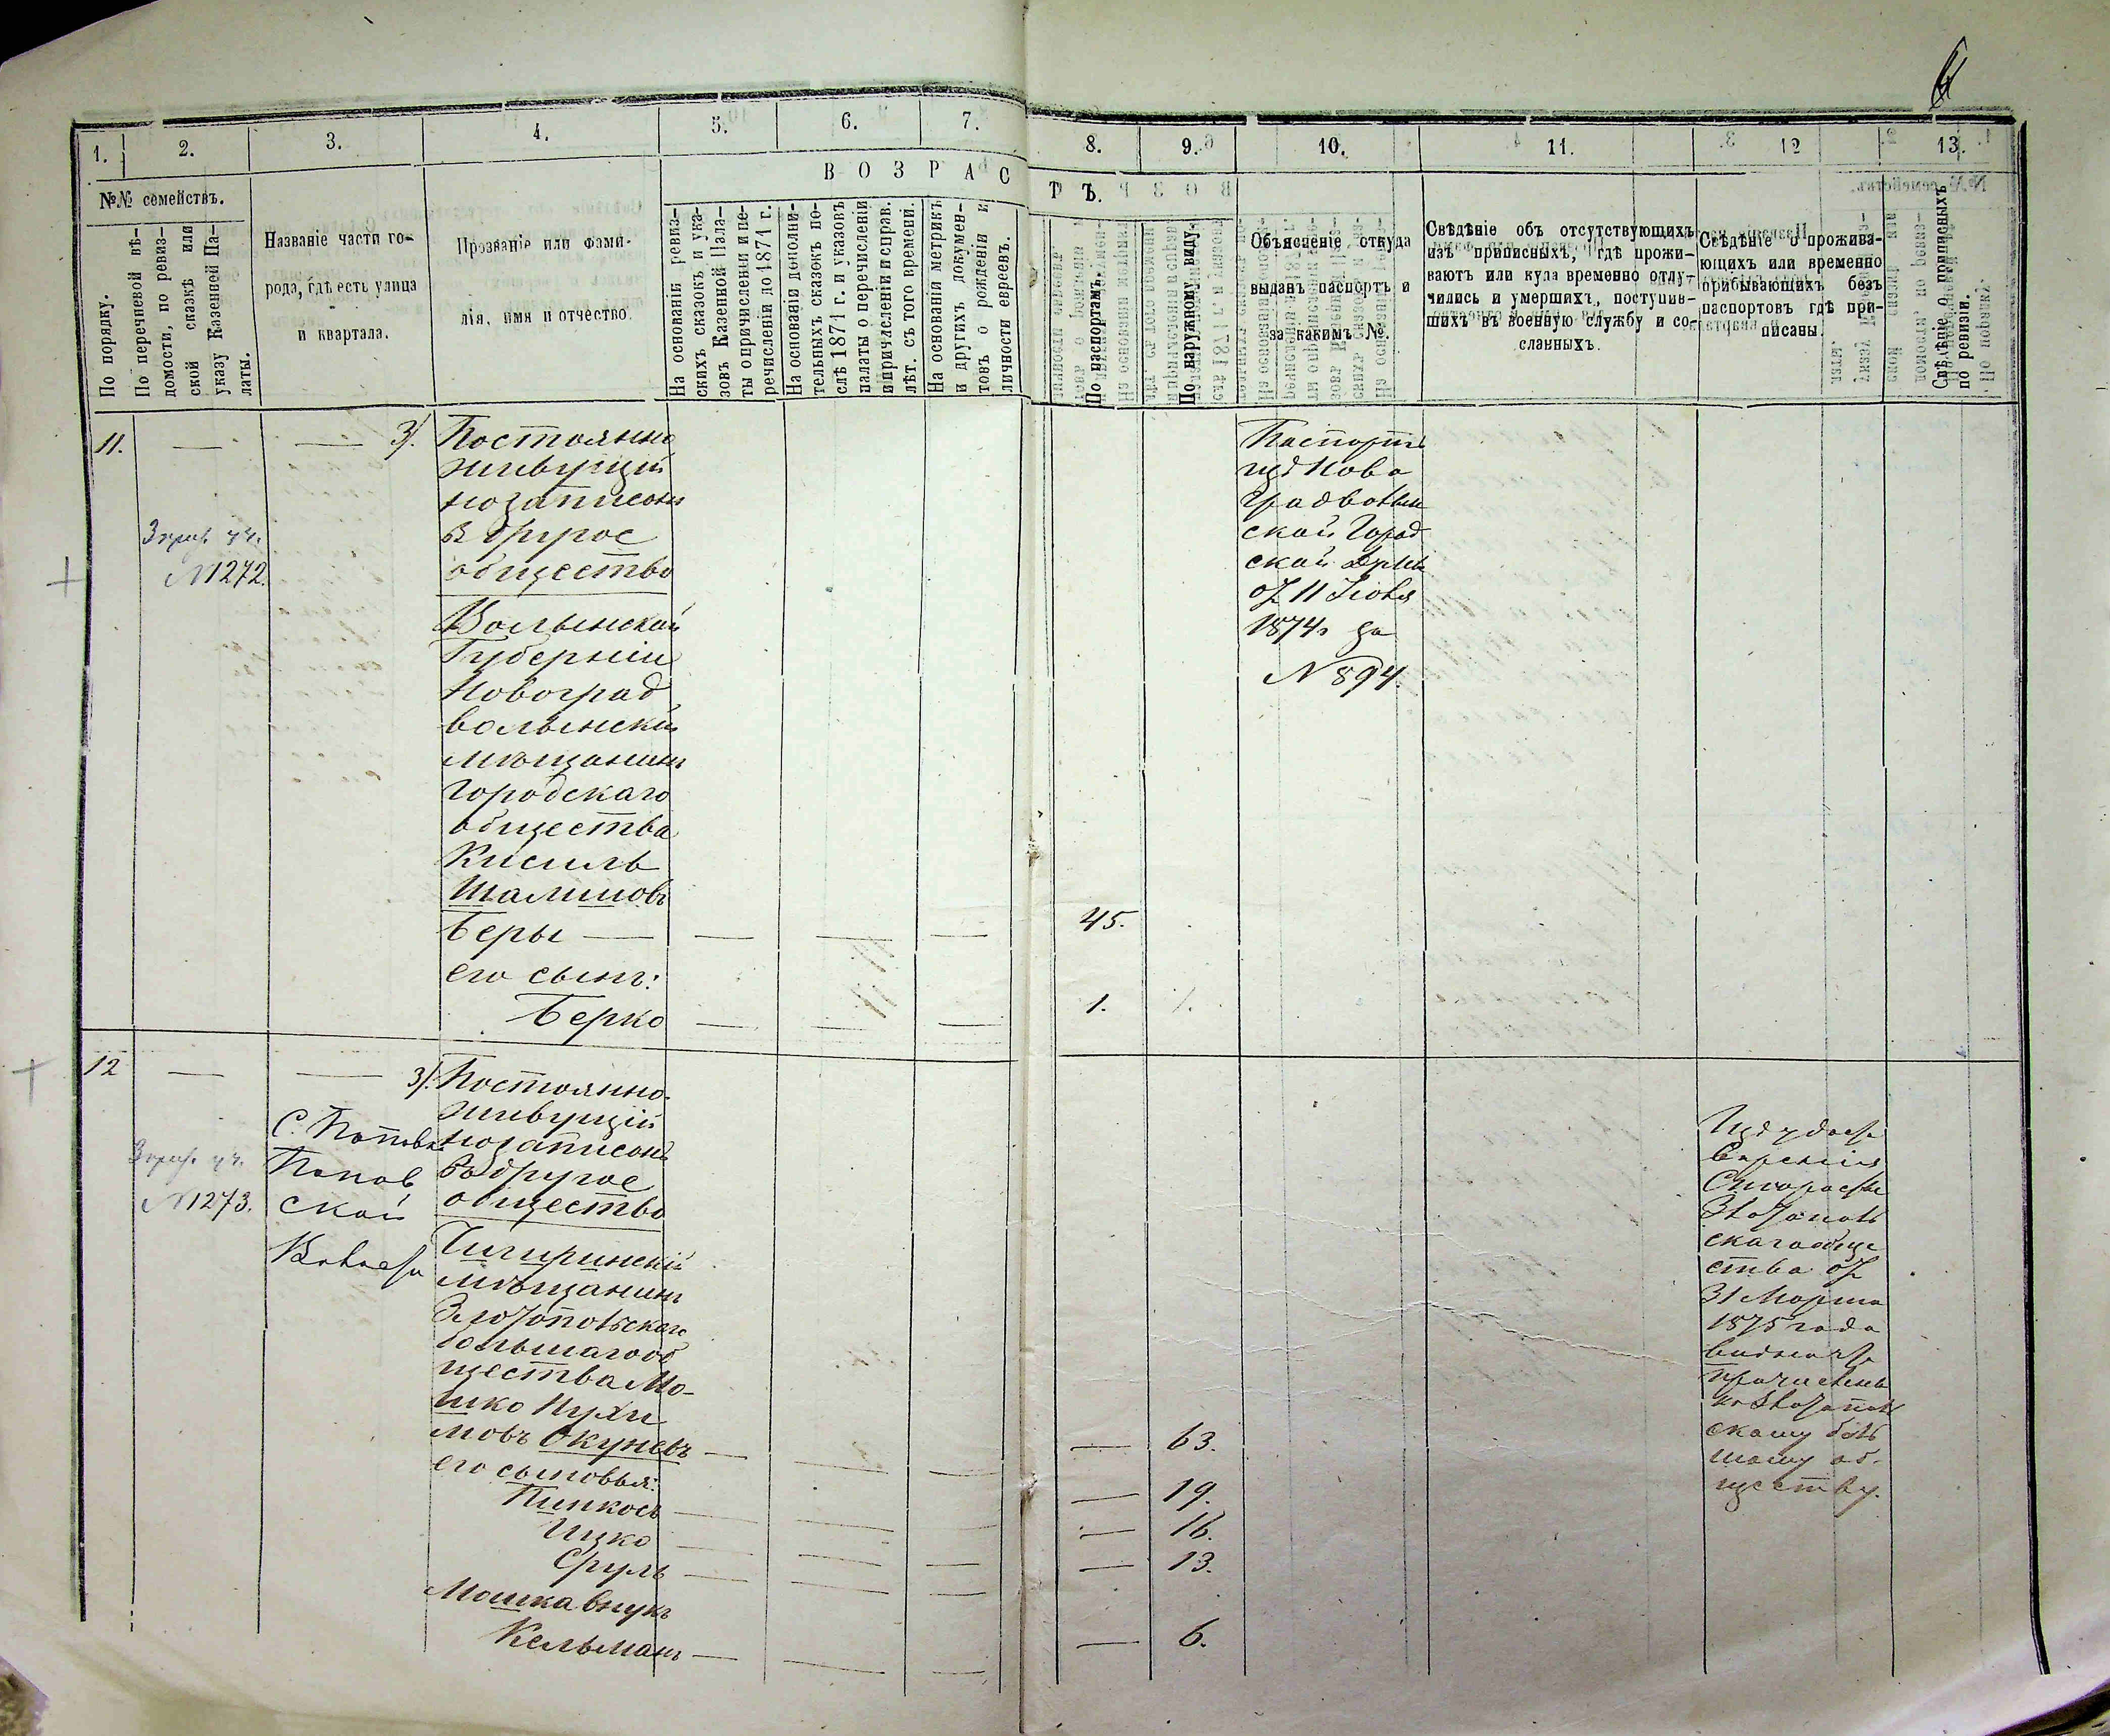 6
1.
2.
3.
4.
5.
6.
7.
8.
9.
10.
11.
12
13.
В О З Р А С
Т Ъ.
№№ семействъ.
По порядку.
По перечневой вѣ-
домости, по ревиз-
ской сказкѣ или
указу Казенней Па-
латы.
Названіе части го-
рода, гдѣ есть улица
и квартала.
Прозваніе или фами-
лія, имя и отчество.
На основаніи ревиз-
скихъ сказокъ и ука-
зовъ Казенной Пала-
ты о причисленіи и пе-
речисленіи до 1871 г.
На основаніи дополни-
тельныхъ сказокъ по-
слѣ 1871 г. и указовъ
палаты о перечисленіи
и причисленіи и справ.
лѣт. съ того времени.
На основаніи метрикъ
и другихъ докумен-
товъ о рожденіи и
личности евреевъ.
По паспортамъ.
По наружному виду.
Объясненіе откуда
выданъ паспортъ и
за какимъ №.
Свѣдѣніе объ отсутствующихъ
изъ приписныхъ, гдѣ прожи-
ваютъ или куда временно отлу-
чились и умершихъ, поступив-
шихъ въ военную службу и со-
сланныхъ.
Свѣдѣніе о прожива-
ющихъ или временно
прибывающихъ безъ
паспортовъ гдѣ при-
писаны.
Свѣдѣніе о приписныхъ
по ревизіи.
11.
№ 1272.
3/. Постоянно
живущій
но записанъ
въ другое
общество
Волынской
Губерніи
Новоград
волынскій
мѣщанинъ
городскаго
общества
Кисиль
Шалимовъ
Беры
его сынъ:
Берко
45.
1.
1.
Паспортъ
изъ Ново
градволын
ской Город
ской Думы
от 11 Іюня
1874 за
№ 894.
12
№ 1273.
С. Поповка
Попов
ской
3/. Постоянно
живущій
но записанъ
въ другое
общество
Чигиринскій
мѣщанинъ
Златопольскаго
большаго об
щества Мо-
шко Нухи
мовъ Окуневъ
его сыновья:
Пинкосъ
Ицко
Сруль
Мошка внукъ
Кельманъ
63.
19.
16.
13.
6.
скаго обще
ства от
31 Марта
1875 года
скому боль
шому об-
ществу.